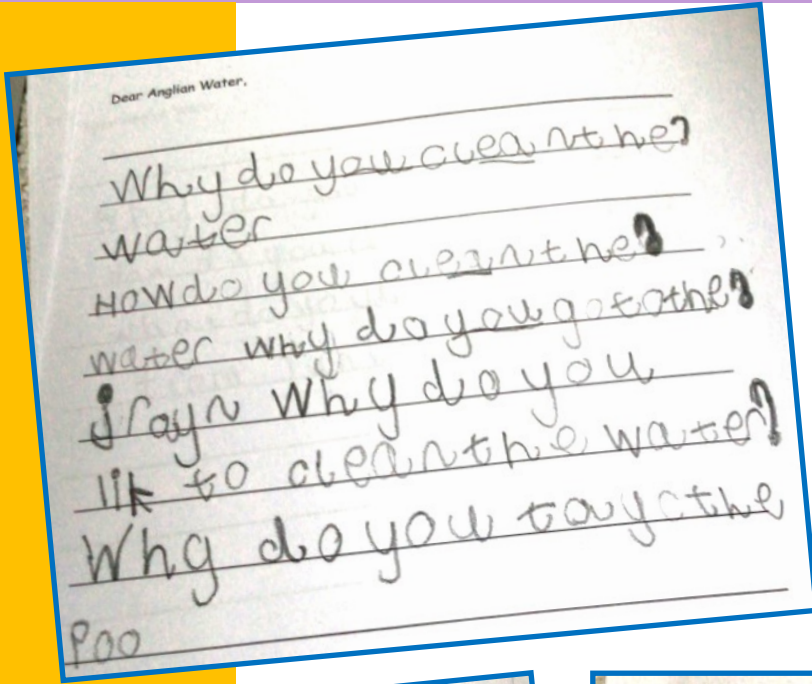 Dear Anglian Water,
Why do you clean the?
water
How do you clean the?
water why do you go to the?
jrayn Why do you
lik to clean the water?
Why do you tayc the
Poo